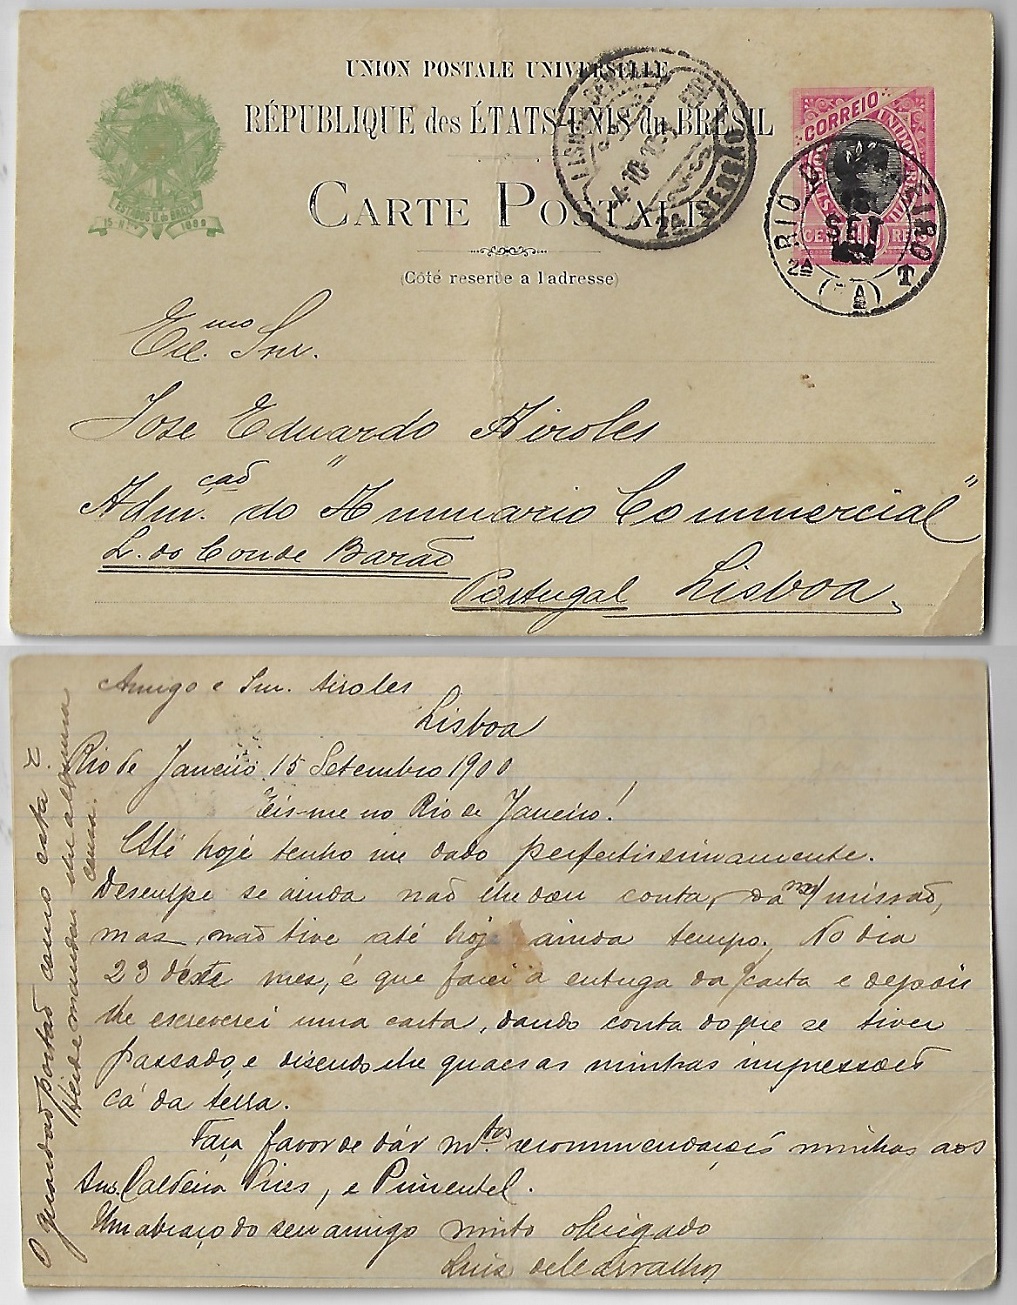 UNION POSTALE UNIVERSELLE
RÉPUBLIQUE des ÉTATS-UNIS du BRÉSIL
CARTE POSTALE
(Côté reservé a l'adresse)
CORREIO
RIO
SET
2ª
T
2ª SECÇÃO
Exc.mo Snr.
Jose Eduardo Airoles
Adm.cão do "Annuario Commercial"
L. do Conde Barão
Portugal Lisboa
Amigo e Snr. Airoles
Lisboa
Rio de Janeiro 15 Setembro 1900
Eis-me no Rio de Janeiro!
Até hoje tenho me dado perfeitissimamente.
Desculpe se ainda não lhe dou conta, da missão,
mas não tive até hoje ainda tempo. No dia
23 deste mez, é que farei a entrega da carta e depois
lhe escreverei uma carta, dando conta do que se tiver
passado, e disendo lhe quaes as minhas impressões
cá da terra.
Faça favor de dár m.tas recommendações minhas aos
Snrs. Caldeira Pires, e Pimentel.
Um abraço do seu amigo muito obrigado
Luis de Carvalho
O guardão portão como está?
Hei de mandar